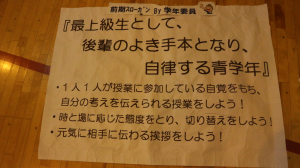 前期スローガン By 学年委員
『最上級生として、
後輩のよき手本となり、
自律する青学年』
・1人1人が授業に参加している自覚をもち、
自分の考えを伝えられる授業をしよう！
・時と場に応じた態度をとり、切り替えをしよう！
・元気に相手に伝わる挨拶をしよう！